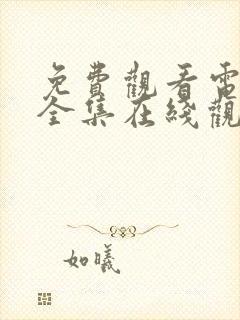 免費觀看電
全集在綫觀
如曦